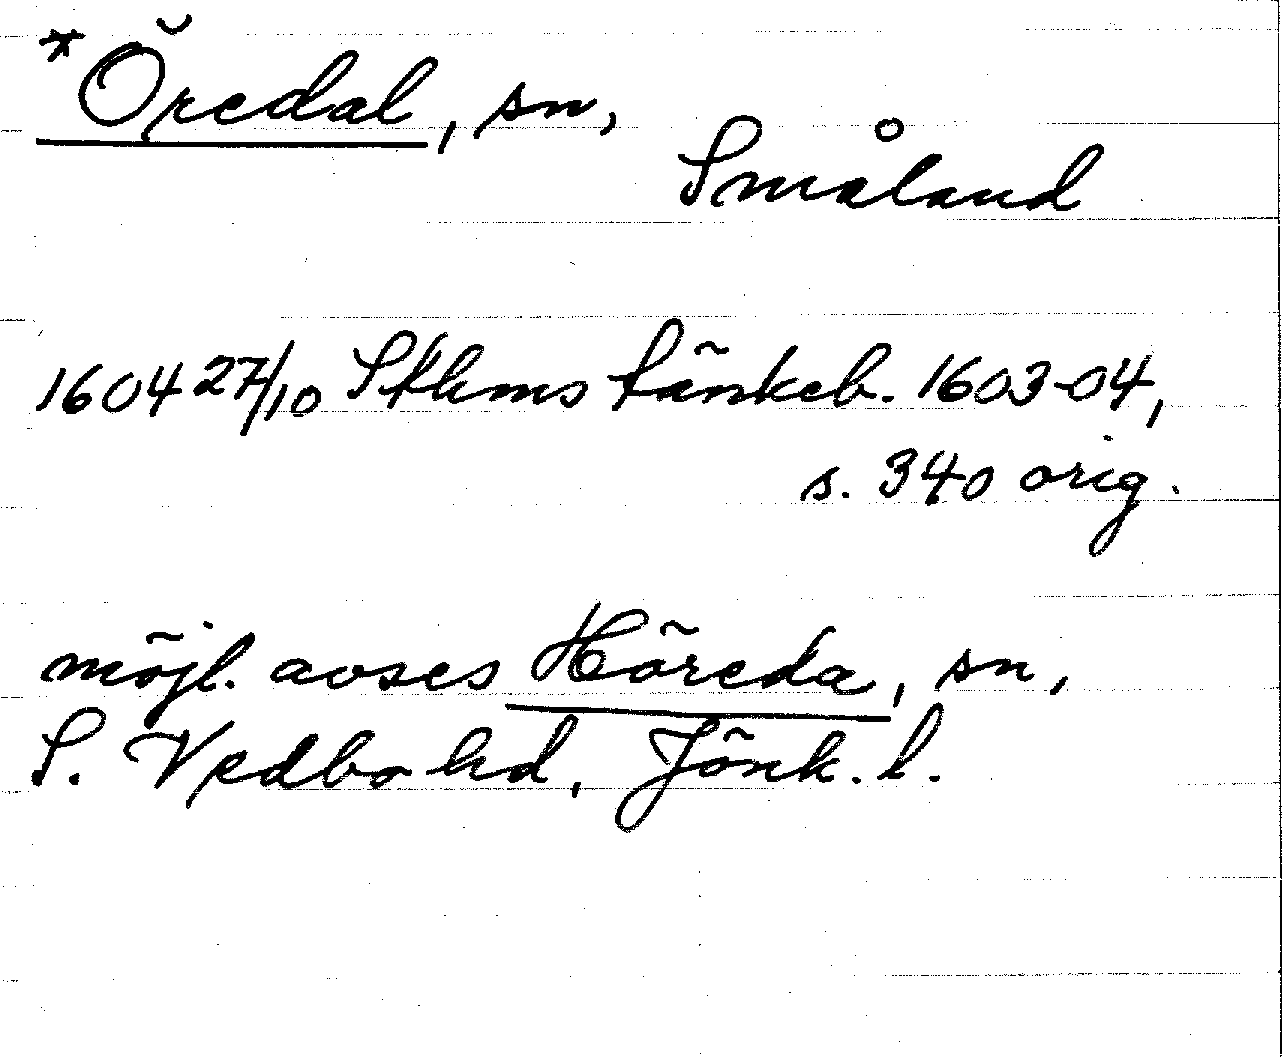 *Öredal, sn,
Småland
1604 27/10 Sthms tänkeb. 1603-04,
s. 340 orig.
möjl. avses Höreda, sn,
S. Vedbo hd, Jönk. l.